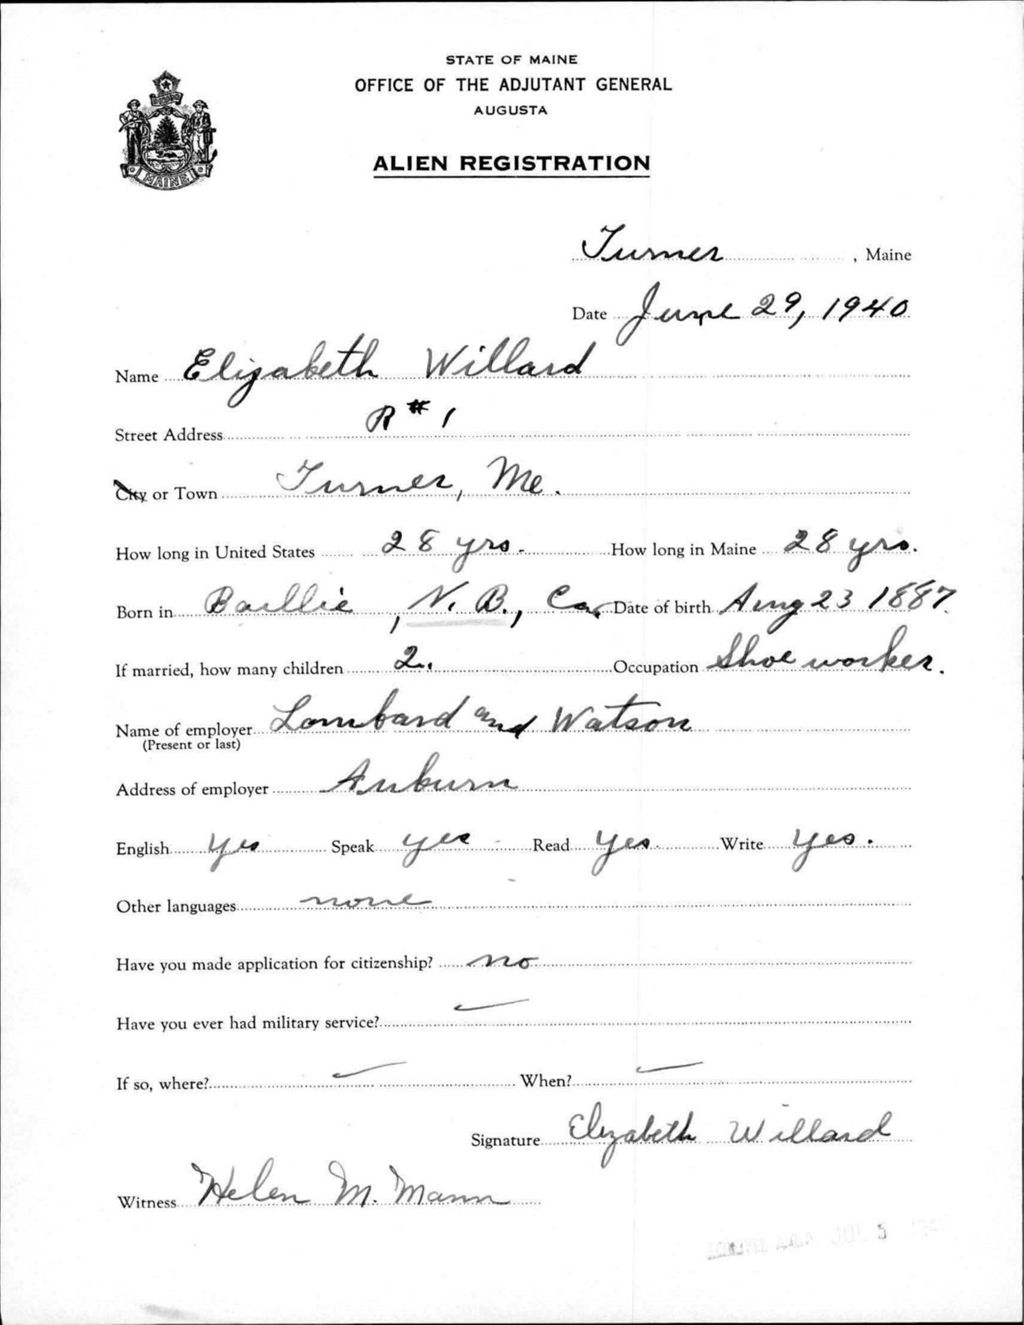 STATE OF MAINE
OFFICE OF THE ADJUTANT GENERAL
AUGUSTA
ALIEN REGISTRATION
MAINE
Turner, Maine
Date June 29, 1940
Name Elizabeth Willard
Street Address R #1
City or Town Turner, Me.
How long in United States 28 yrs. How long in Maine 28 yrs.
Born in Baillie, N. B., Ca. Date of birth Aug 23 1887.
If married, how many children 2. Occupation Shoe worker.
Name of employer Lombard and Watson
(Present or last)
Address of employer Auburn
English yes Speak yes Read yes Write yes.
Other languages none
Have you made application for citizenship? no
Have you ever had military service?
If so, where? When?
Signature Elizabeth Willard
Witness Helen M. Mann